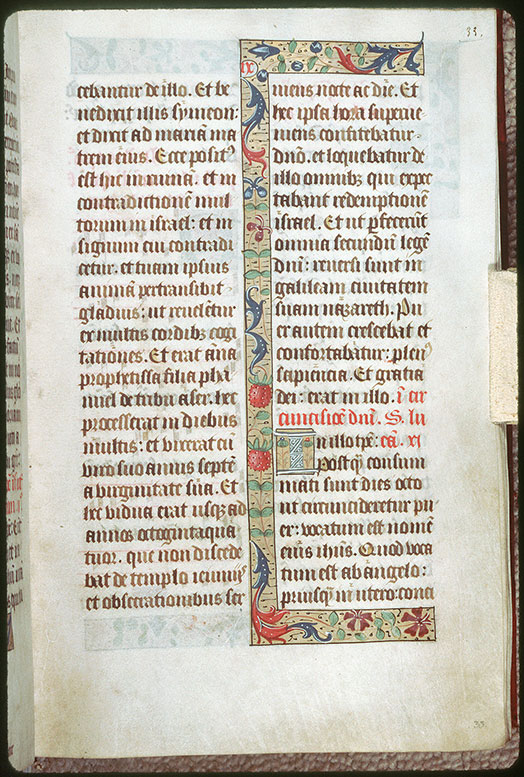 33.
cebantur de illo. Et be
nedixit illis symeon:
et dixit ad mariā ma
trem eius. Ecce posit⁹
est hic in ruinā. et in
contradictionem mul
torum in israel: et in
signum cui contradi
cetur. et tuam ipsius
animā pertransibit
gladius: ut revelētur
ex multis cordibꝫ cogi
tationes. Et erat āna
prophetissa filia pha
nuel de tribu aser. hec
processerat in diebus
multis: et vixerat cū
viro suo annis septē
a virginitate sua. Et
hec vidua erat usqꝫ ad
annos octoginta qua
tuor. que non discede
bat de templo ieiuniis
et obsecrationibus ser
viens nocte ac die. Et
hec ipsa hora superve
niens confitebatur
dn̄o. et loquebatur de
illo omnibꝫ qui expec
tabant redemptionē
israel. Et ut ꝑfecerūt
omnia secundū legē
dn̄i: reversi sunt in
galileam civitatem
suam nazareth. Pu
er autem crescebat et
confortabatur: plen⁹
sapiencia. Et gratia
dei: erat in illo. ī cir
cūcisiōe dn̄i. S. lu
In illo tp̄e: cā. xi
Postꝙ consum
mati sunt dies octo
ut circūcideretur pu
er: vocatum est nomē
eius ih̄us. Quod voca
tum est ab angelo:
priusꝙ in utero: conci
33.